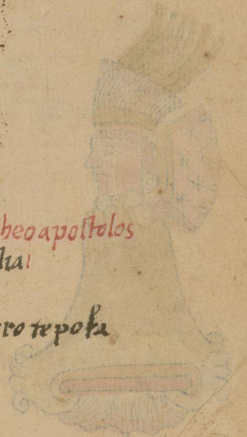 heo apostolos
lia
ro tepoh̃a